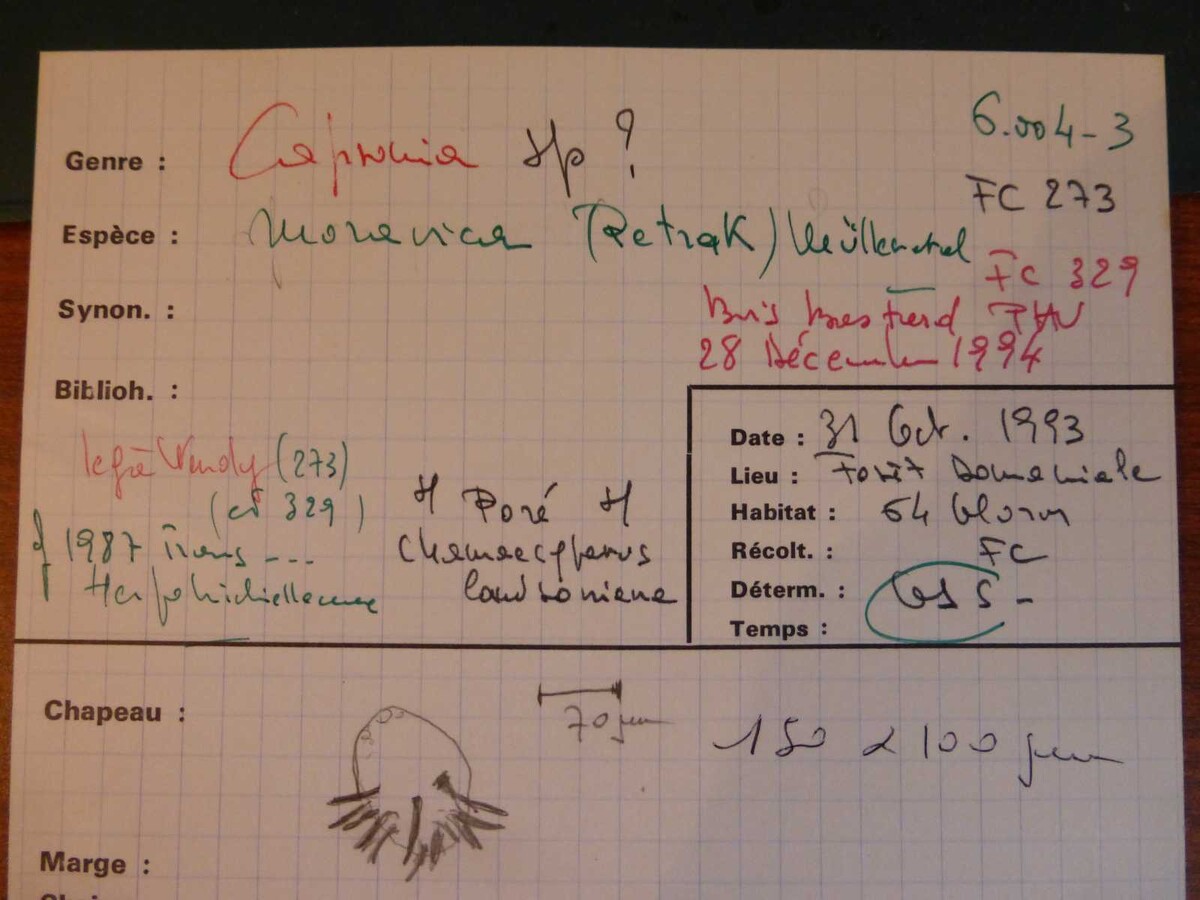 6.004-3
Genre : Capronia sp ?
FC 273
Espèce : moravica (Petrak) Müller et al
FC 329
Synon. :
28 Décembre 1994
Biblioh. :
Date : 31 Oct. 1993
(273)
Lieu : Forêt Domaniale
(et 329)
Poré
Habitat : 64
1987 Trans ---
Chamaecyparus
Récolt. : FC
Herpotrichiellaceae
lawsoniana
Déterm. :
Temps :
Chapeau :
70 µm
150 x 100 µm
Marge :